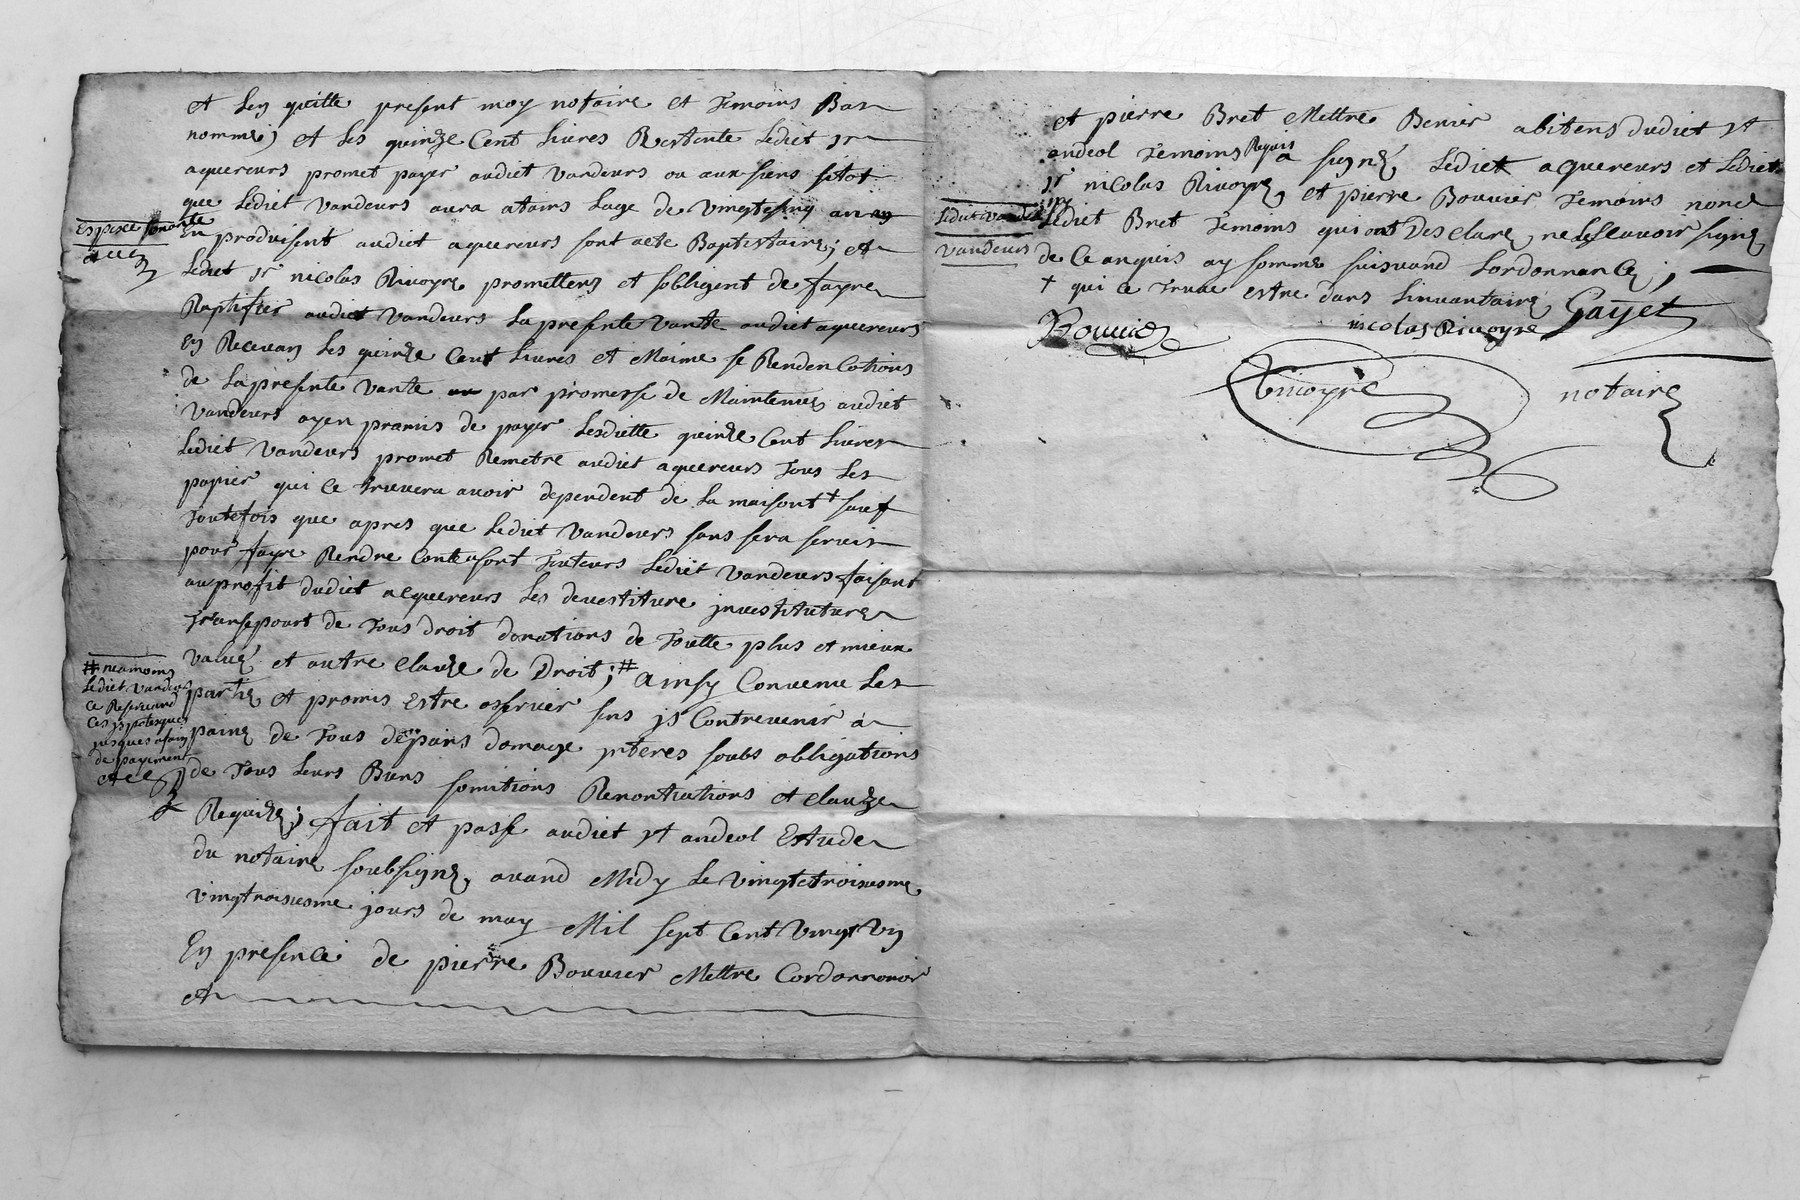 et Len quitte present moy notaire et temoins Bas
nommé; et Les quinze Cent Livres Restante Lediet sr
aquereurs promet payer audiet vandeurs ou aux siens sitot
que Lediet vandeurs aura atains Lage de vingtcinq an
En produisent audiet aquereurs sont acte Baptistaire; et
Lediet sr nicolas Rivoyre promettens et sobligent de fayre
Raptifier audiet vandeurs La presente vante audiet aquereurs
En Recevan Les quinze Cent Livres et Maime se Renden Cotions
de Lapresente vante par promesse de Maintenir audiet
vandeurs ayen pramis de payer Lesdiette quinze Cent Livres
Lediet vandeurs promet Remetre audiet aquereurs Tous Les
papier qui Ce truvera avoir dependent de La maisont + sauf
Toutefois que apres que Lediet vandeurs sans sera servir
pour fayre Rendre Conte asont Tuteurs Lediet vandeurs faisant
auprofit dudiet acquereurs Les devestiture jnvestiture
Transepourt de Tous droit donations de Toutte plus et mieux
valué et autre Clauze de Droit; # ainsy Convenu Les
partie et promis Estre oservér sens js Contrevenir a
paine de Tous depains domage jnteres soubs obligations
de Tous Leurs Biens somitions Renontiations et Clauze
Requize; fait et passé audiet st andeol Estude
du notaire soubsigné, avand Midy Le vingtetroisiesme
vingtroisiesme jours de may Mil sept Cent vingt un
En presence de pierre Bouvier Mettre Cordonnonir
et
Espece sonante
# neamoins
Lediet vandeurs
Ce Reservand
Ces ypoteques
jusques afain
de payement
et pierre Bret Mettre abitens dudiet st
andeol Temoins Requis a signé Lediet aquereurs et Lediet
sr nicolas Rivoyre, et pierre Bouvier Temoins nond
Lediet Bret Temoins qui ont Desclaré ne Lescavoir signe
de Ce anquis ay sommé suisvand Lordonnance;
+ qui Ce Truve estre dans Linvantaire
Lediet vandeurs
vandeurs
Bouvier
nicolas Rivoyre
Gayet
Rivoyre
notaire